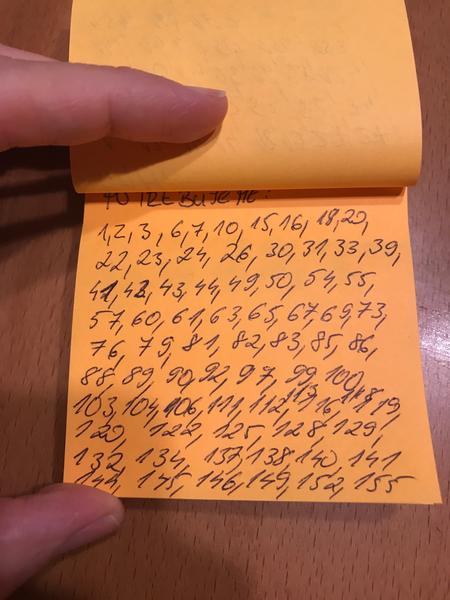 TREBUJEME:
1,2,3,6,7,10,15,16,18,20,
22,23,24,26,30,31,33,39,
41,42,43,44,49,50,54,55,
57,60,61,63,65,67 69,73,
76,79,81,82,83,85,86,
88,89,90,92,97,99,100,
103,104,106,111,112,113,116,118,119,
120,122,125,128,129,
132,134,137,138,140,141
144,145,146,149,152,155